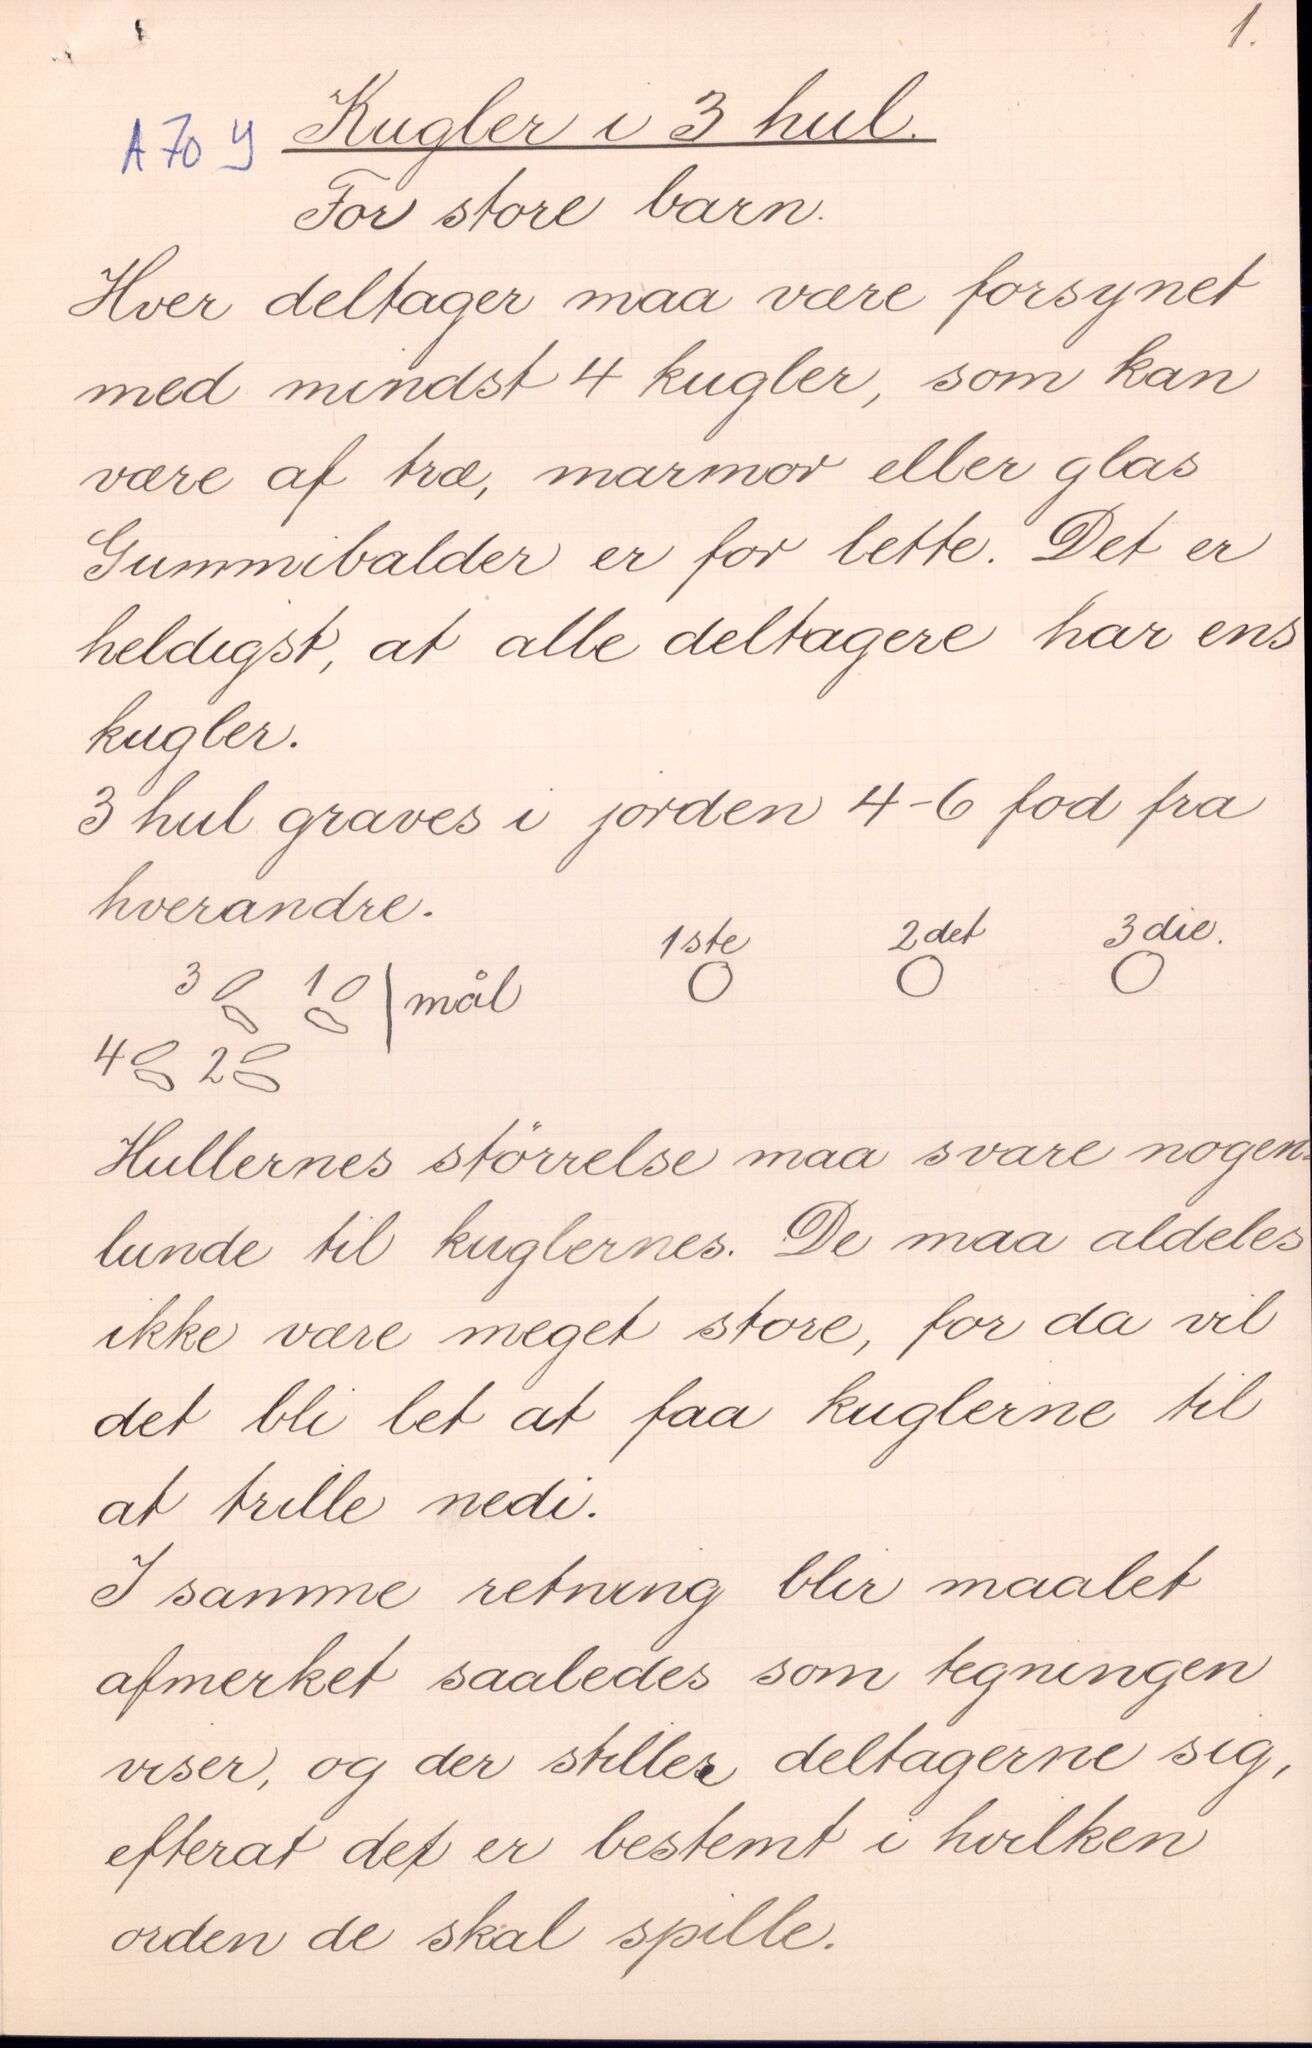 1.
A 70 y
Kugler i 3 hul.
For store barn.
Hver deltager maa være forsynet
med mindst 4 kugler, som kan
være af træ, marmor eller glas
Gummibalder er for lette. Det er
heldigst, at alle deltagere har ens
kugler.
3 hul graves i jorden 4-6 fod fra
hverandre.
1ste 2det 3die.
3 1 mål
4 2
Hullernes störrelse maa svare nogen-
lunde til kuglernes. De maa aldeles
ikke være meget store, for da vil
det bli let at faa kuglerne til
at trille nedi.
I samme retning blir maalet
afmerket saaledes som tegningen
viser, og der stiller deltagerne sig,
efterat det er bestemt i hvilken
orden de skal spille.